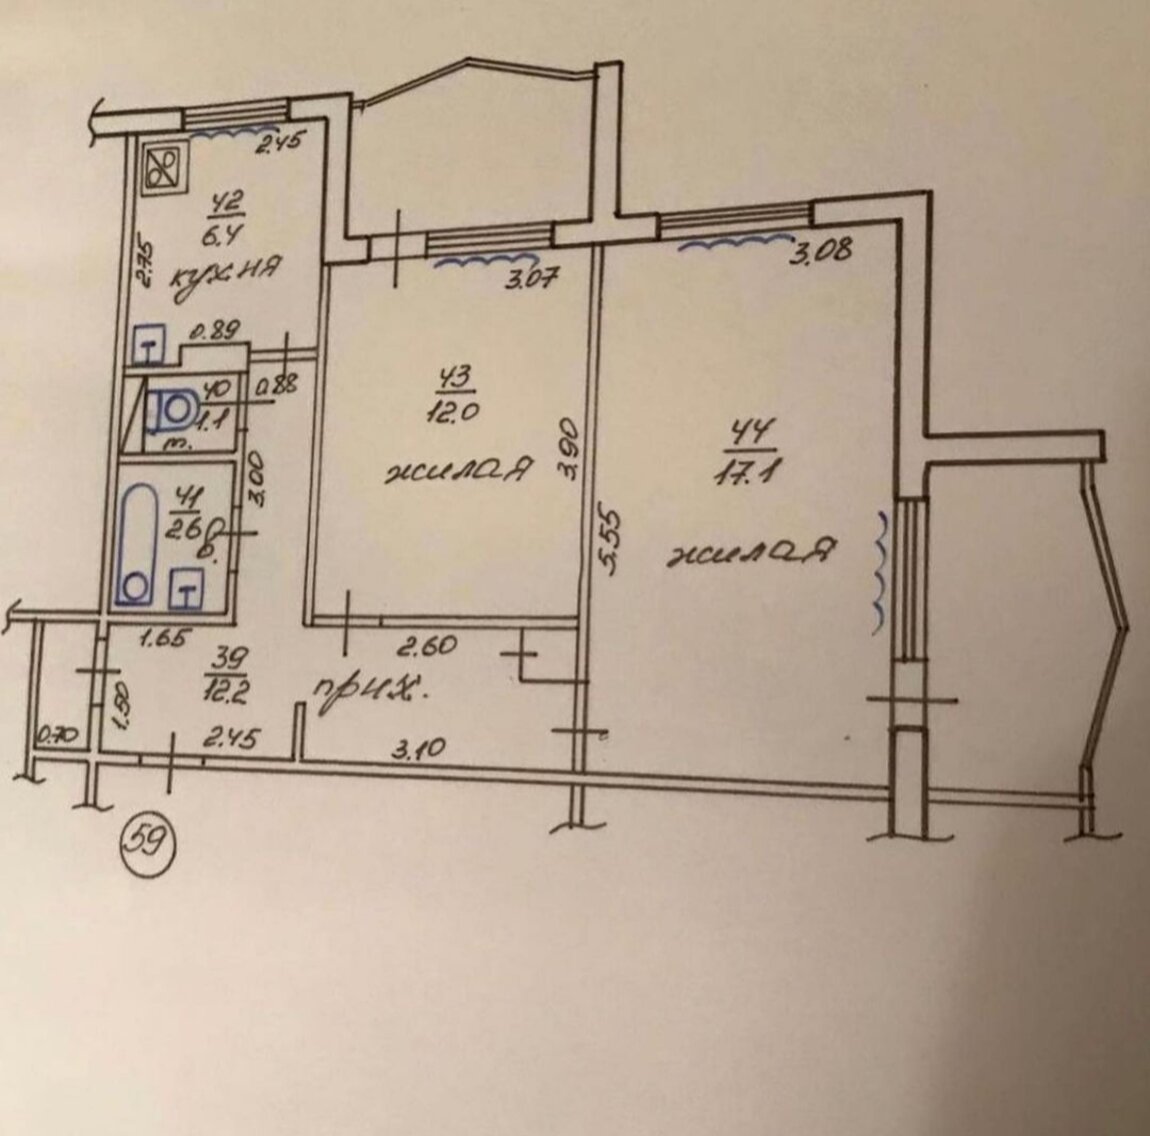 2.45
42
6.4
кухня
2.75
0.89
3.07
3.08
40
1.1
т.
0.88
43
12.0
жилая
3.90
44
17.1
жилая
5.55
41
2.6
в.
3.00
1.65
39
12.2
прих.
2.60
1.50
0.70
2.45
3.10
59